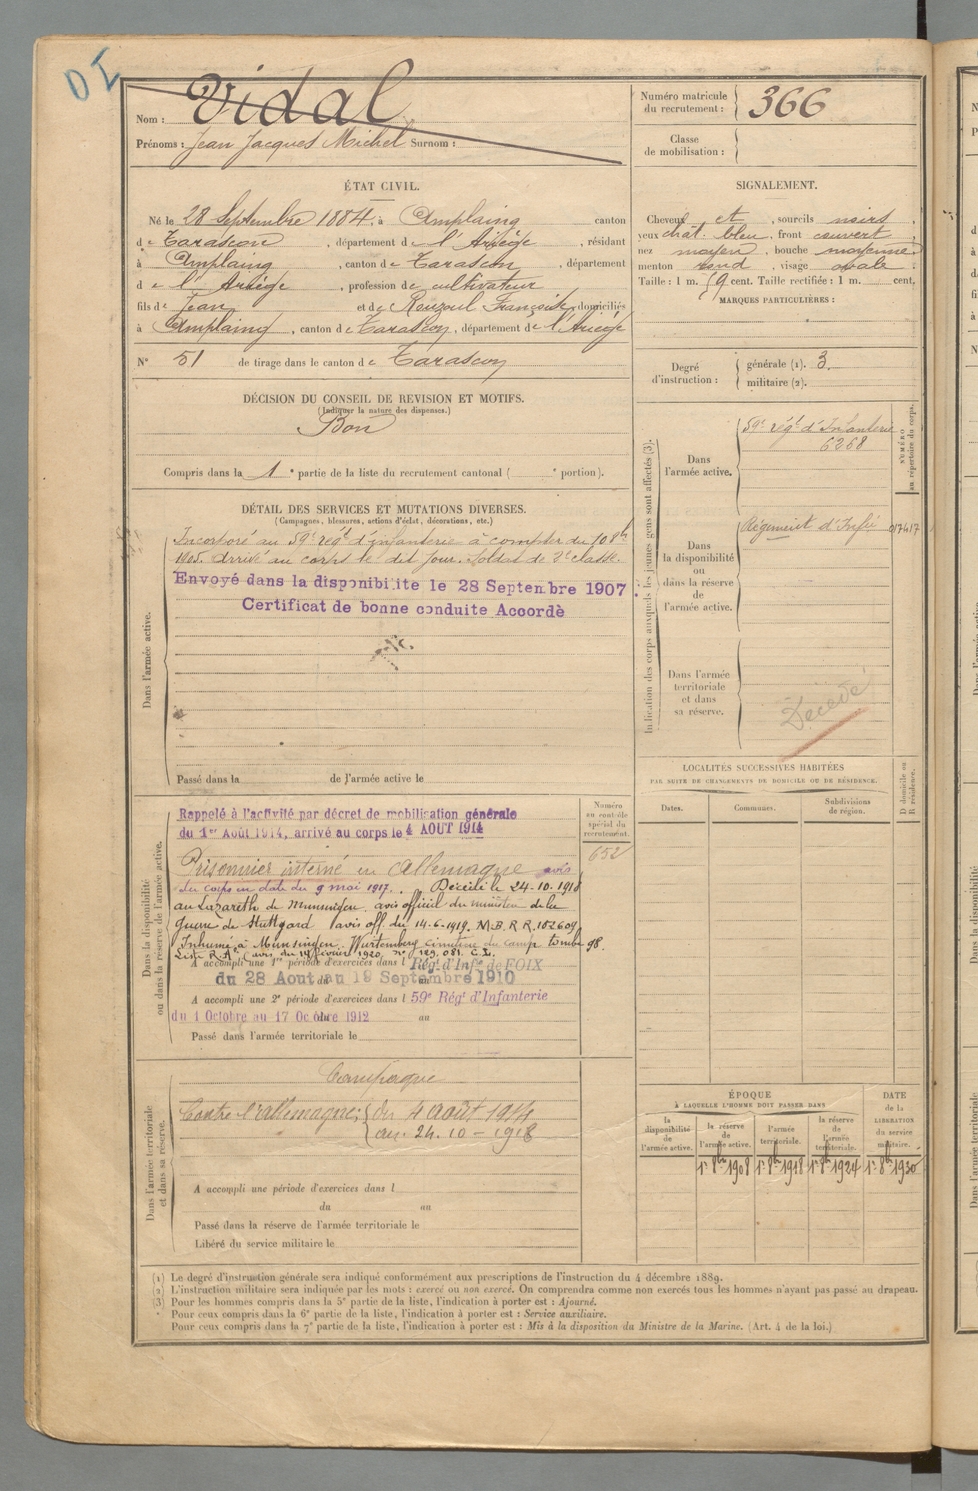 DI
Nom : Vidal
Prénoms : Jean Jacques Michel Surnom :
Numéro matricule du recrutement : 366
Classe de mobilisation :
ÉTAT CIVIL.
Né le 28 Septembre 1884, à Amplaing canton
de Tarascon, département de l'Ariège, résidant
à Amplaing, canton de Tarascon, département
de l'Ariège, profession de cultivateur
fils de Jean et de Rouzoul Françoise, domiciliés
à Amplaing, canton de Tarascon, département de l'Ariège
N° 51 de tirage dans le canton de Tarascon
SIGNALEMENT.
Cheveux et, sourcils noirs,
yeux chât. bleu, front couvert,
nez moyen, bouche moyenne
menton rond, visage ovale.
Taille : 1 m. 59 cent. Taille rectifiée : 1 m. cent.
MARQUES PARTICULIÈRES :
Degré d'instruction : générale (1). 3.
militaire (2).
DÉCISION DU CONSEIL DE REVISION ET MOTIFS.
(Indiquer la nature des dispenses.)
Bon
Compris dans la 1e partie de la liste du recrutement cantonal ( e portion).
DÉTAIL DES SERVICES ET MUTATIONS DIVERSES.
(Campagnes, blessures, actions d'éclat, décorations, etc.)
Dans l'armée active.
Incorporé au 59e régt d'infanterie à compter du 10 8bre
1905. Arrivé au corps le dit jour. Soldat de 2e classe.
Envoyé dans la disponibilite le 28 Septembre 1907
Certificat de bonne conduite Accordè
Passé dans la de l'armée active le
Indication des corps auxquels les jeunes gens sont affectés (3).
NUMÉRO au répertoire du corps.
Dans l'armée active.
59e régt d'Infanterie
6268
Dans la disponibilité ou dans la réserve de l'armée active.
Régiment d'Infie
Dans l'armée territoriale et dans sa réserve.
Décédé
LOCALITÉS SUCCESSIVES HABITÉES
PAR SUITE DE CHANGEMENTS DE DOMICILE OU DE RÉSIDENCE.
Dates.
Communes.
Subdivisions de région.
D domicile ou R résidence.
Dans la disponibilité ou dans la réserve de l'armée active.
Numéro au contrôle spécial du recrutement.
652
Rappelé à l'activité par décret de mobilisation générale
du 1er Août 1914, arrivé au corps le 4 AOUT 1914
Prisonnier interné en Allemagne avis
du corps en date du 9 mai 1917. Décédé le 24-10-1918
au Lazareth de Munsingen avis officiel du ministère de la
guerre de Stuttgard avis off. du 14-6-1919. M.B.R.R. 102609
Inhumé à Munsingen. Wurtemberg cimetière du camp tombe 98.
A accompli une 1re période d'exercices dans l Régt d'Infie de FOIX
du 28 Aout au 19 Septembre 1910
A accompli une 2e période d'exercices dans l 59e Régt d'Infanterie
du 1 Octobre au 17 Octobre 1912 au
Passé dans l'armée territoriale le
Dans l'armée territoriale et dans sa réserve.
Campagne
Contre l'Allemagne : du 4 août 1914
au 24-10-1918
A accompli une période d'exercices dans l
du au
Passé dans la réserve de l'armée territoriale le
Libéré du service militaire le
ÉPOQUE
À LAQUELLE L'HOMME DOIT PASSER DANS
la disponibilité de l'armée active.
la réserve de l'armée active.
l'armée territoriale.
la réserve de l'armée territoriale.
DATE de la LIBÉRATION du service militaire.
1r 8bre 1908
1r 8bre 1918
1r 8bre 1924
1r 8bre 1930
(1) Le degré d'instruction générale sera indiqué conformément aux prescriptions de l'instruction du 4 décembre 1889.
(2) L'instruction militaire sera indiquée par les mots : exercé ou non exercé. On comprendra comme non exercés tous les hommes n'ayant pas passé au drapeau.
(3) Pour les hommes compris dans la 5e partie de la liste, l'indication à porter est : Ajourné.
Pour ceux compris dans la 6e partie de la liste, l'indication à porter est : Service auxiliaire.
Pour ceux compris dans la 7e partie de la liste, l'indication à porter est : Mis à la disposition du Ministre de la Marine. (Art. 4 de la loi.)